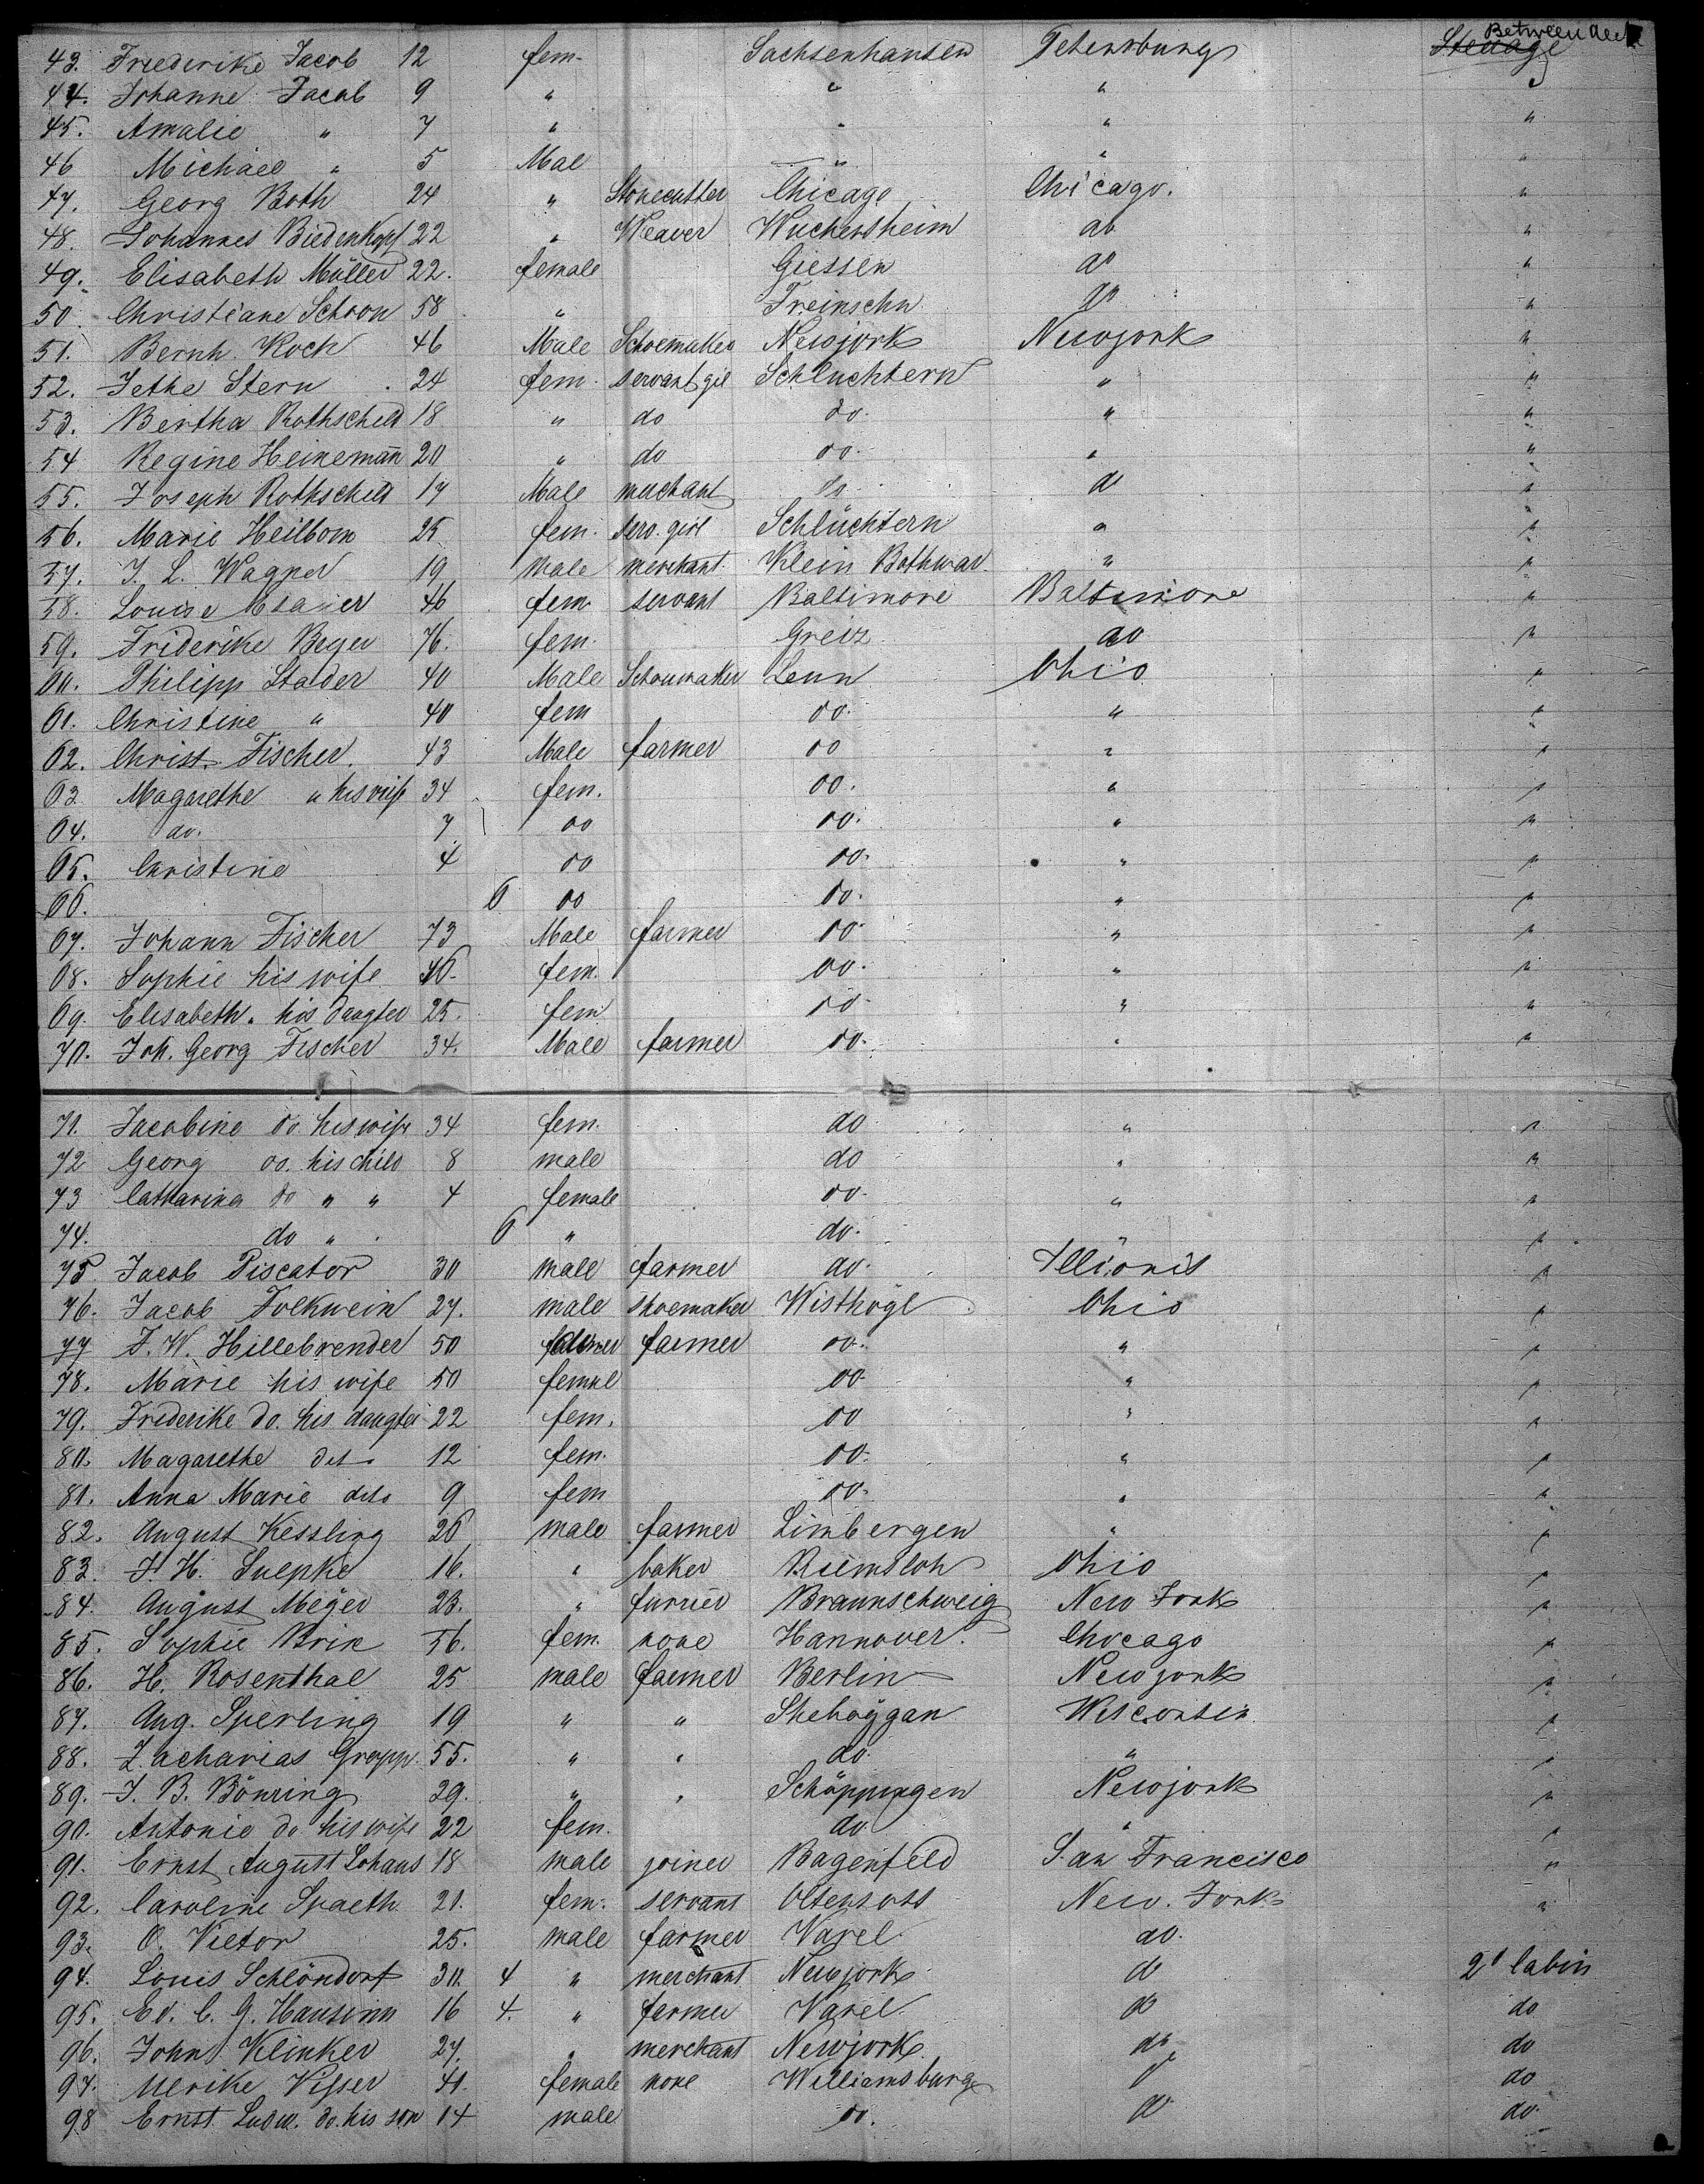 Between deck
43. Friederike Jacob 12 fem. Sachsenhausen Petersburg Steuage
44. Johanne Jacob 9 " " " "
45. Amalie " 7 " " " "
46 Michael " 5 Mal " " "
47. Georg Both 24 " Stonecutter Chicago Chicago. "
48. Johannes Biedenkopf 22 " Weaver Wuchersheim do "
49. Elisabeth Müller 22. female Giessen do "
50. Christiane Schoon 58 " Freinschn do "
51. Bernh. Koch 46 Male Schoemaker Newjork Newjork "
52. Jethe Stern 24 fem. servant gil Schluchtern " "
53. Bertha Rothschild 18 " do do. " "
54 Regine Heinemann 20 " do do. " "
55. Joseph Rothschild 17 Male merchant do d "
56. Marie Heilborn 25 fem. serv. girl Schlüchtern " "
57. J. L. Wagner 19 male merchant Klein Bothwar. " "
58. Louise 46 fem servant Baltimore Baltimore "
59. Friderike Beyer 76. fem. Greiz do "
60. Philipp Stader 40 Male Schoumaker Lenn Ohio "
61. Christine " 40 fem do. " "
62. Christ. Fischer. 43 Male farmer do " "
63 Magarethe " his wife 34 fem. do. " "
64. do. 7 do do. " "
65. Christine 4 do do. " "
66. 6 do do. " "
67. Johann Fischer 73 Male farmer do. " "
68. Sophie his wife 46. fem. do. " "
69. Elisabeth " his daugter 25. fem do. " "
70. Joh. Georg Fischer 34. Male farmer do. " "
71. Jacobine do. his wife 34 fem. do " "
72 Georg do. his child 8 male do " "
73 Catharina do " " 4 female do. " "
74. do " 6 " do. " "
75 Jacob Piscator 30 male farmer do. Illionis "
76. Jacob Folkwein 27. male shoemaker Wisthögl Ohio "
77 F. W. Hillebrender 50 farmer do. " "
78. Marie his wife 50 femal do. " "
79. Friderike do. his daugter 22 fem. do " "
80. Magarethe det. 12 fem. do. " "
81. Anna Marie deto 9 fem do. " "
82. August Kessling 26 male farmer Limbergen " "
83. F. H. Suepke 16. " baker Riemsloh Ohio "
84. August Meÿer 23. " furrier Braunschweig New York "
85. Sophie Brik 56. fem. none Hannover. Chicago "
86. H. Rosenthal 25 male farmer Berlin Newjork "
87. Aug. Sperling 19 " " Sheboÿgan Wisconsin "
88. Zacharias Gropp. 55. " " do. " "
89. J. B. Bönring 29. " " Schöppingen Newjork "
90. Antonie do his wife 22 fem. do " "
91. Ernst August Lohaus 18 male joiner Bagenfeld San Francisco "
92. Caroline Spaeth 21. fem. servant Oltensoss New. York "
93. O. Vietor 25. male farmer Varel do. "
94. Louis Schlöndorf 30. 4 " merchant Newjork do 2d Cabin
95. Ed. C. G. Hausinn 16 4. " farmer Varel. do do
96. John Klinker 27. " merchant Newjork do do
97. Ulrike Visser 41. female none Williamsburg d do
98 Ernst Ludw. do. his son 14 male do. do do.